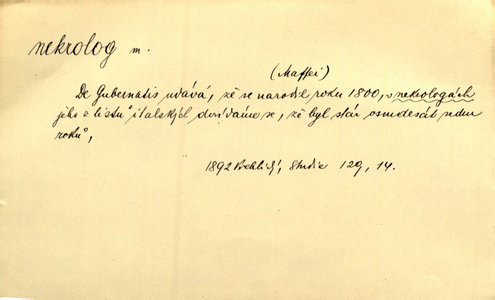 nekrolog m.
(Maffei)
De Gubernatis udává, že se narodil roku 1800, v nekrologách
jeho z listů italských dovídáme se, že byl stár osmdesát sedm
roků,
1892 Vrchlický, Studie 129, 14.